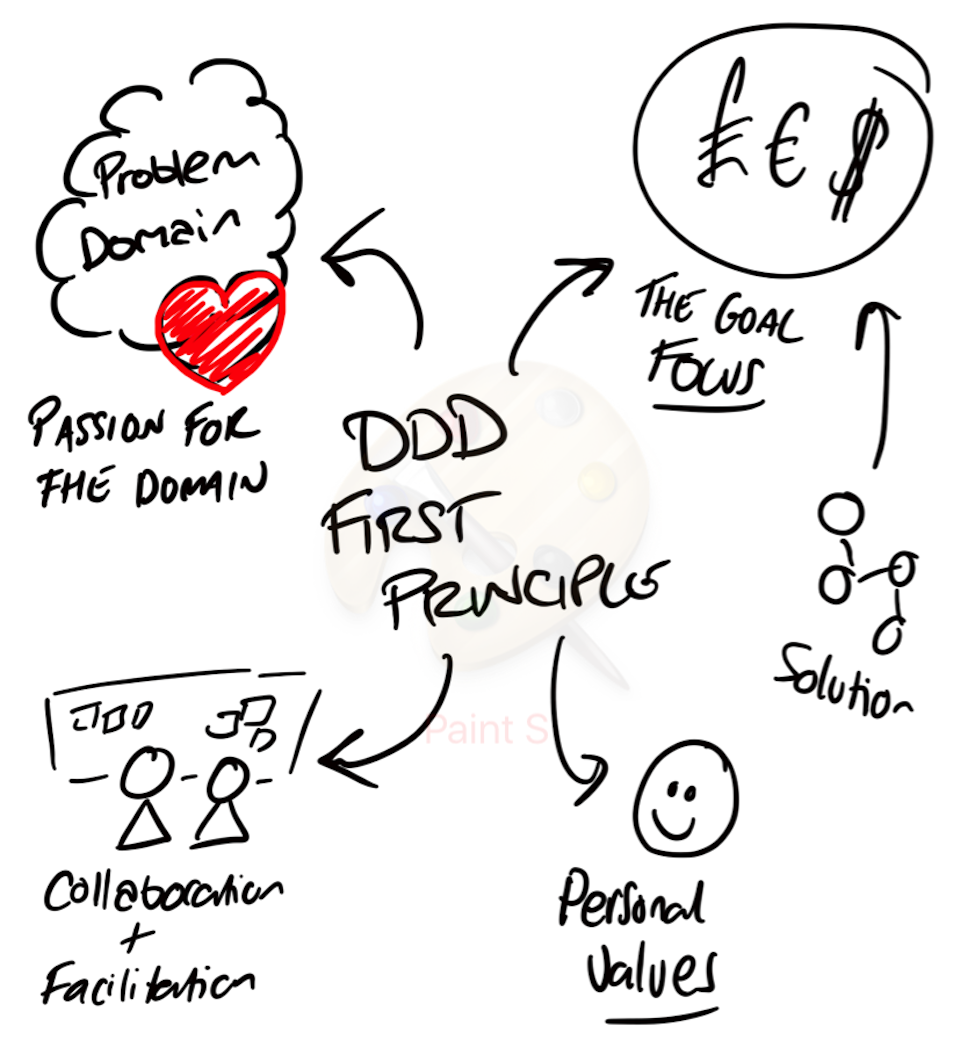 Problem
Domain
PASSION FOR
THE DOMAIN
£ € $
THE GOAL
FOCUS
DDD
FIRST
PRINCIPLE
Solution
Paint S
Collaboration
+
Facilitation
Personal
Values